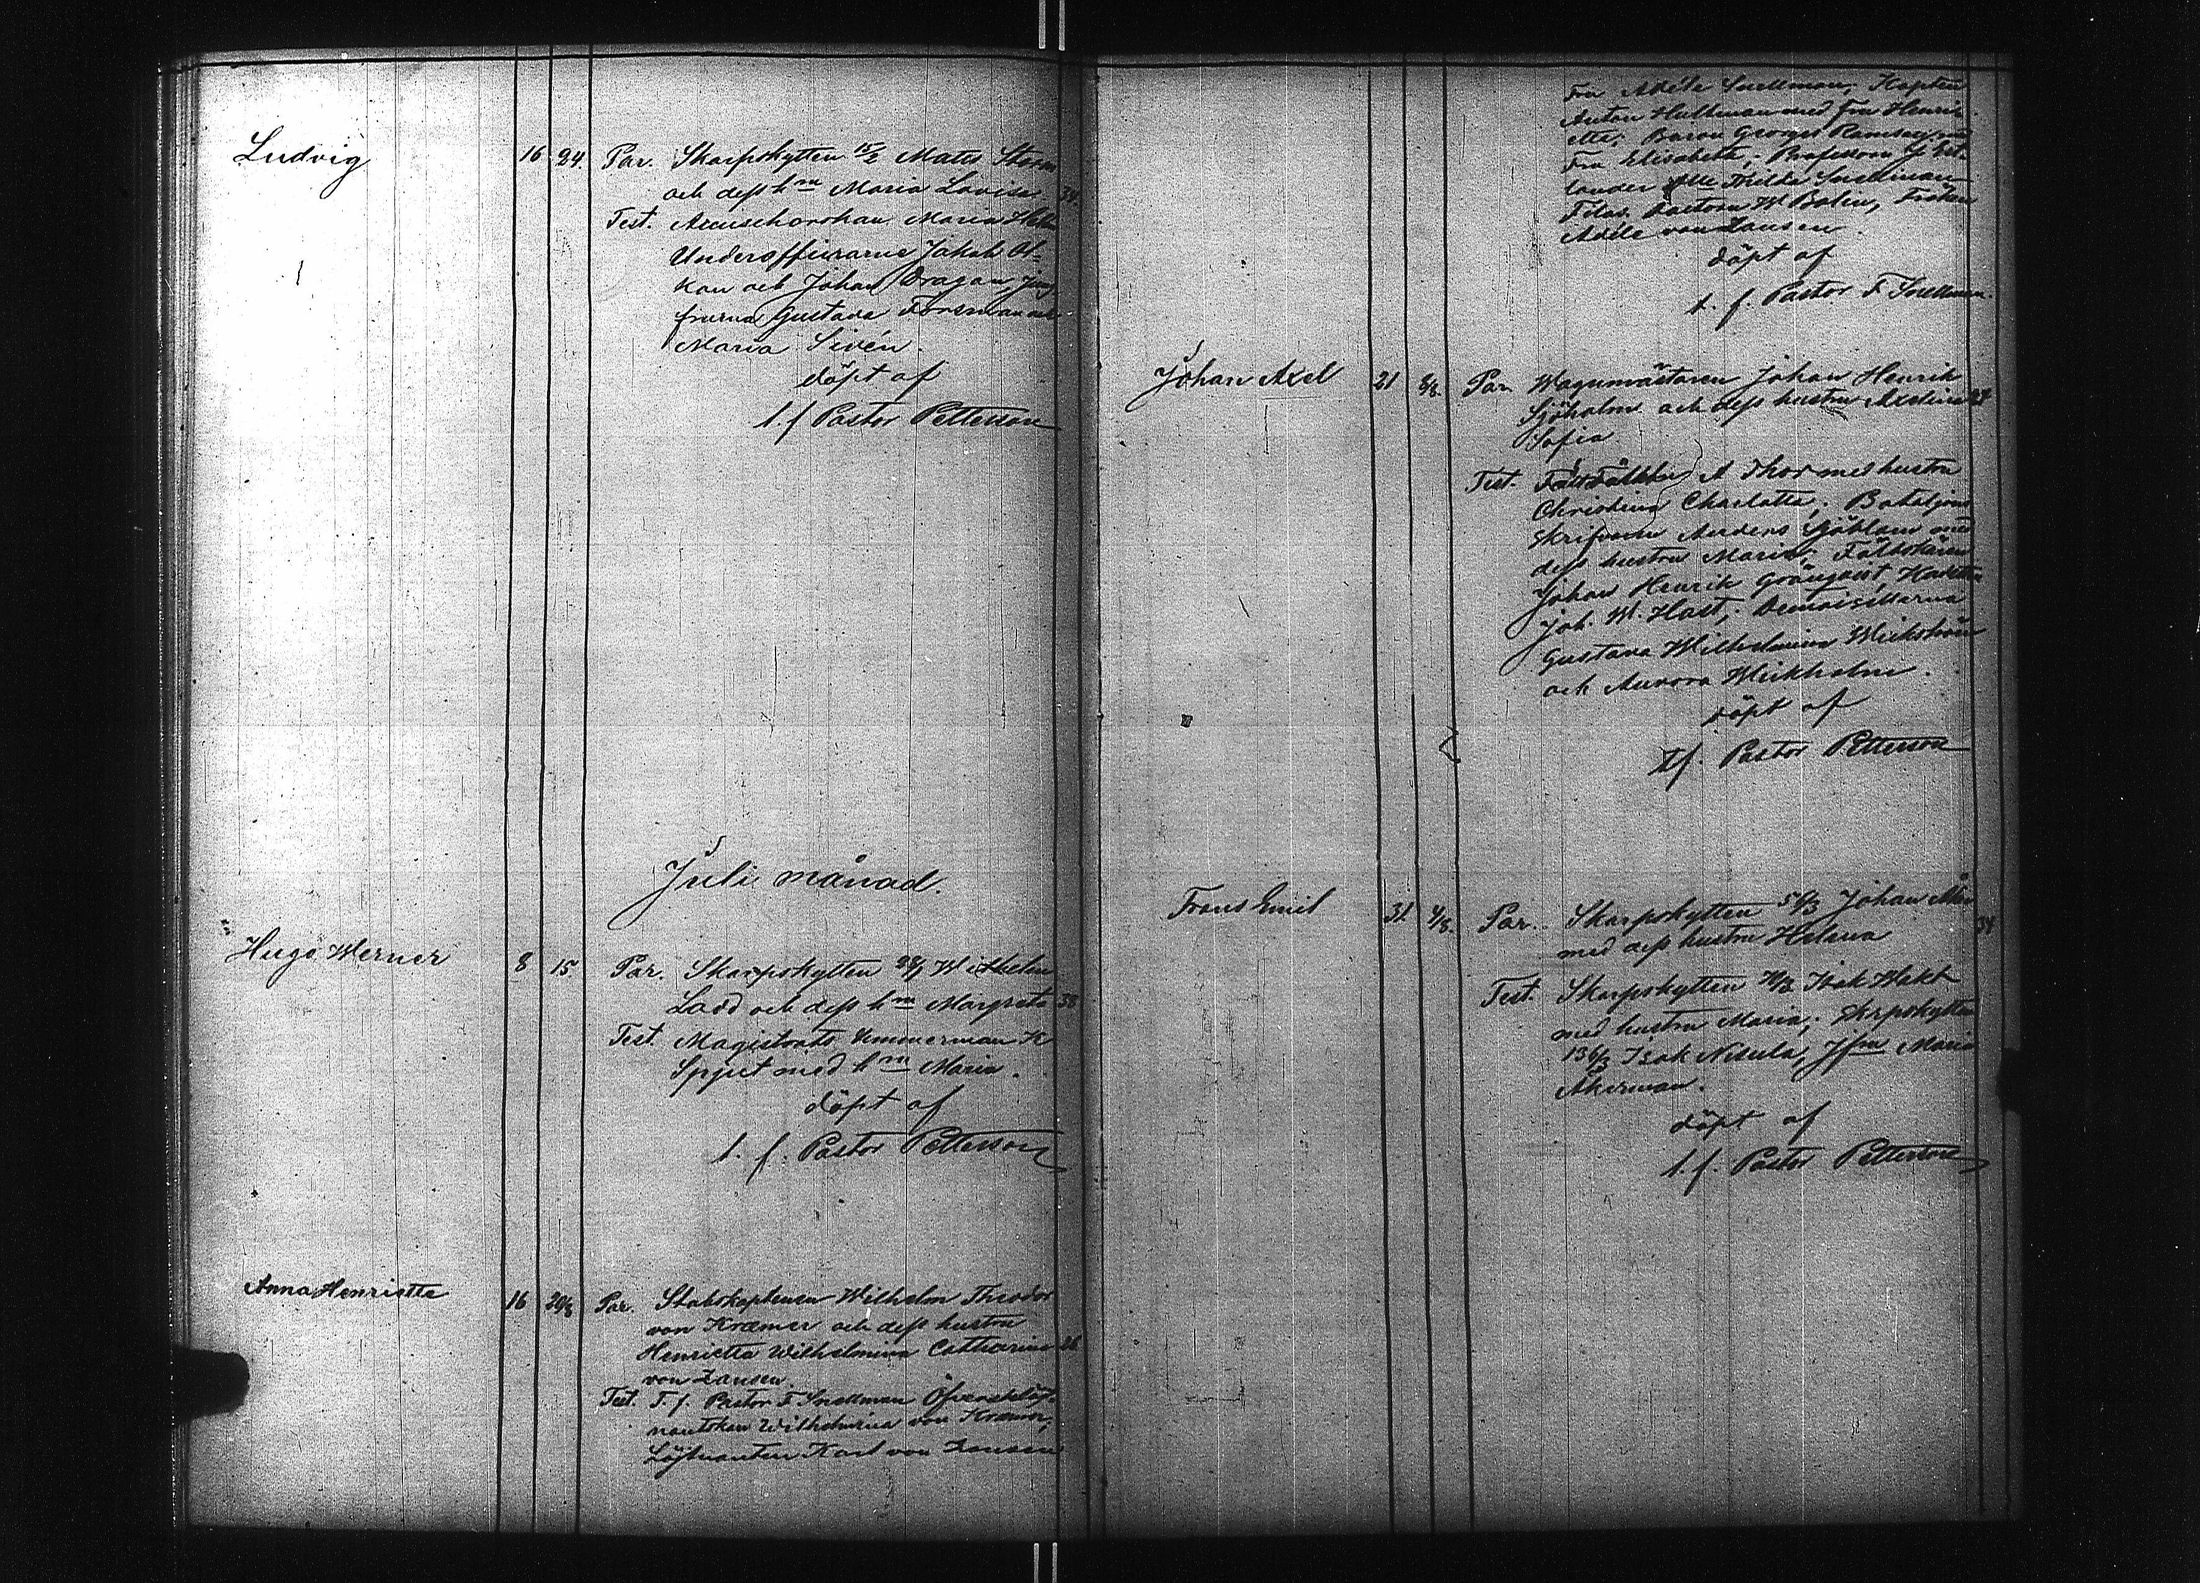 Ludvig 16 24. Par. Skarpskytten 15/2 Mats Storm
och dess hru Maria Lovisa 34
Test. Maria
Underofficerarne Jakob Ol-
kon och Johan Dragon Jung
frurna Gustava Forsman och
Maria Sivén.
döpt af
t. f. Pastor Petterson
Juli månad.
Hugo Werner 8 15 Par. Skarpskytten 28/1 Wilhelm
Ladd och dess hru Margreta 33
Test. Magistrats Timmerman K
Spjut med hru Maria.
döpt af
t. f. Pastor Petterson
Anna Henriette 16 20/8 Par. Stabskaptenen Wilhelm Theodor
von Kræmer och dess hustru
Henrietta Wilhelmina Catharina 26
von Zansen.
Test. T. f. Pastor F Snellman Öfverstelöjt-
nantskan Wilhelmina von Kræmer,
Löjtnanten Karl von Zansen
Fru Adéle Snellman, Kapten
Anton Hultman med Fru Henri-
ette; Baron Georges Ramsay med
Fru Elisabeth; Professorn
lander Thilda Snellman
Pastorn W Bolin, Fröken
Adéle von Zansen.
döpt af
t. f. Pastor F Snellman.
Johan Axel 21 8/8 Par. Wagnmästaren Johan Henrik
Sjöholm och dess hustru Axelina 28
Sofia
Test. A Thor med hustru
Christina Charlotta; Bataljons
skrifvaren Anders Sjöblom med
dess hustru Maria, Fältskären
Johan Henrik Grönqvist,
Joh. W. Hast; Demoisellerna
Gustava Wilhelmina Wickström
och Aurora Wickholm.
döpt af
t. f. Pastor Petterson
Frans Emil 31. 4/8. Par. Skarpskytten 56/3 Johan
med dess hustru Helena 34
Test. Skarpskytten Isak Wakt
med hustru Maria; Skrpskytten
136/3 Isak Nikula, Jfru Maria
Åkerman.
döpt af
t. f. Pastor Petterson